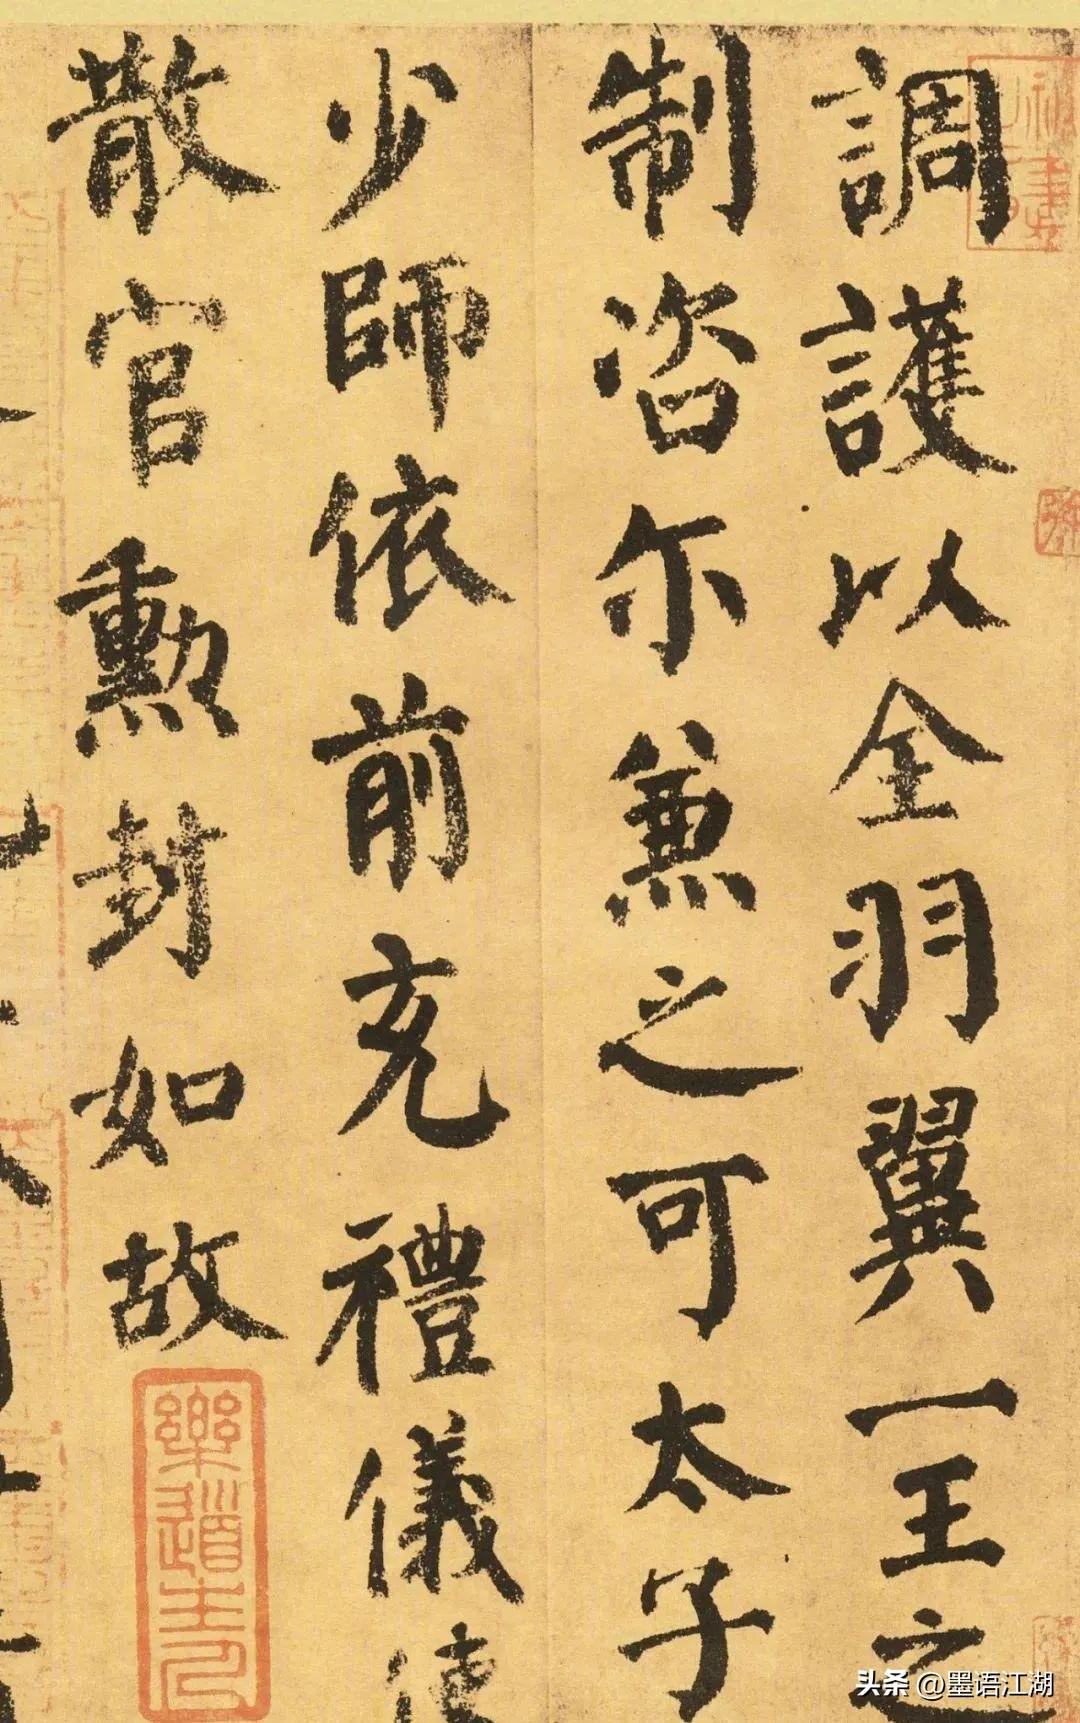 調護以全羽翼一王之
制咨尔兼之可太子
少師依前充禮儀使
散官勳封如故
頭条 @墨语江湖